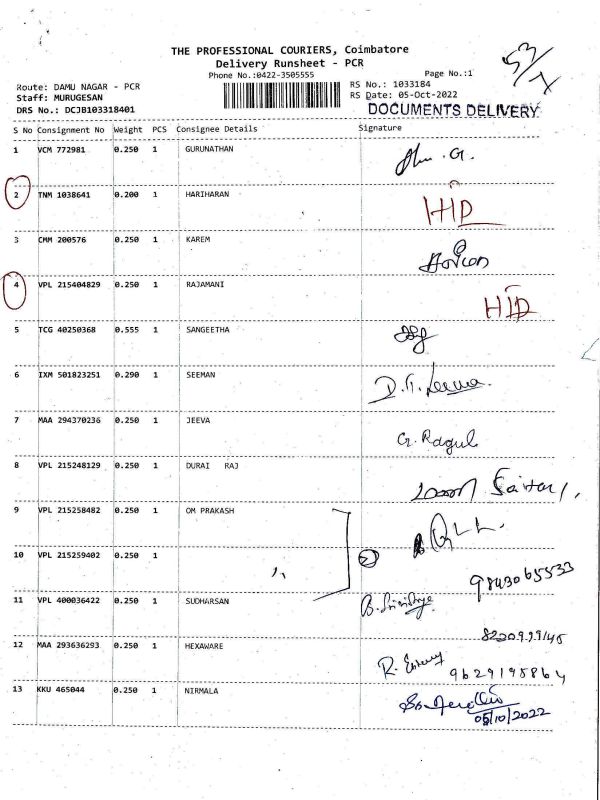 THE PROFESSIONAL COURIERS, Coimbatore
Delivery Runsheet - PCR
Phone No.:0422-3505555
Page No.:1
53/7
Route: DAMU NAGAR - PCR
RS No.: 1033184
Staff: MURUGESAN
RS Date: 05-Oct-2022
DRS No.: DCJB103318401
DOCUMENTS DELIVERY
S No Consignment No Weight PCS Consignee Details Signature
1 VCM 772981 0.250 1 GURUNATHAN
2 TNM 1038641 0.200 1 HARIHARAN HID
3 CMM 200576 0.250 1 KAREM
4 VPL 215404829 0.250 1 RAJAMANI HID
5 TCG 40250368 0.555 1 SANGEETHA
6 IXM 501823251 0.290 1 SEEMAN
7 MAA 294370236 0.250 1 JEEVA G. Ragul
8 VPL 215248129 0.250 1 DURAI RAJ
9 VPL 215258482 0.250 1 OM PRAKASH
10 VPL 215259402 0.250 1 2
9843065533
11 VPL 400036422 0.250 1 SUDHARSAN
12 MAA 293636293 0.250 1 HEXAWARE
9629195864
13 KKU 465044 0.250 1 NIRMALA
05/10/2022